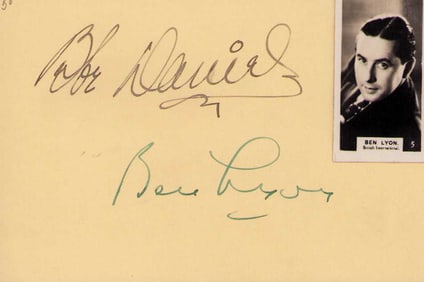 Bebe Daniels
BEN LYON.
British International.
5
Ben Lyon